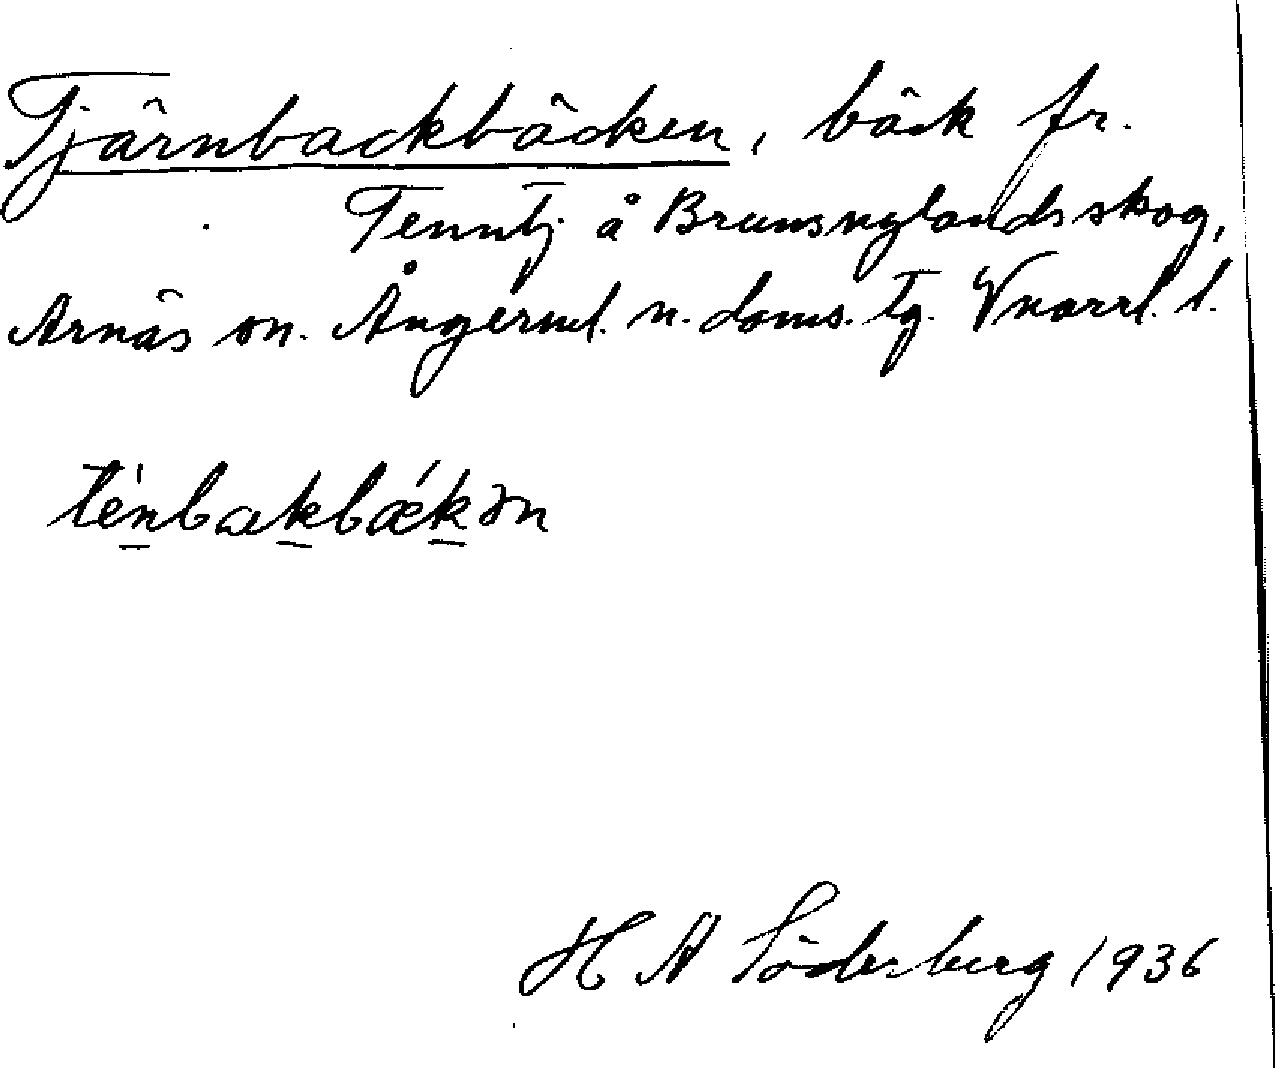 Tjärnbackbäcken, bäck fr.
Tenntj. å Brunsnylandsskog,
Arnäs sn. Ångerml. n. doms. tg. Vnorrl. l.
tènbakbǽkən
H A Söderberg 1936